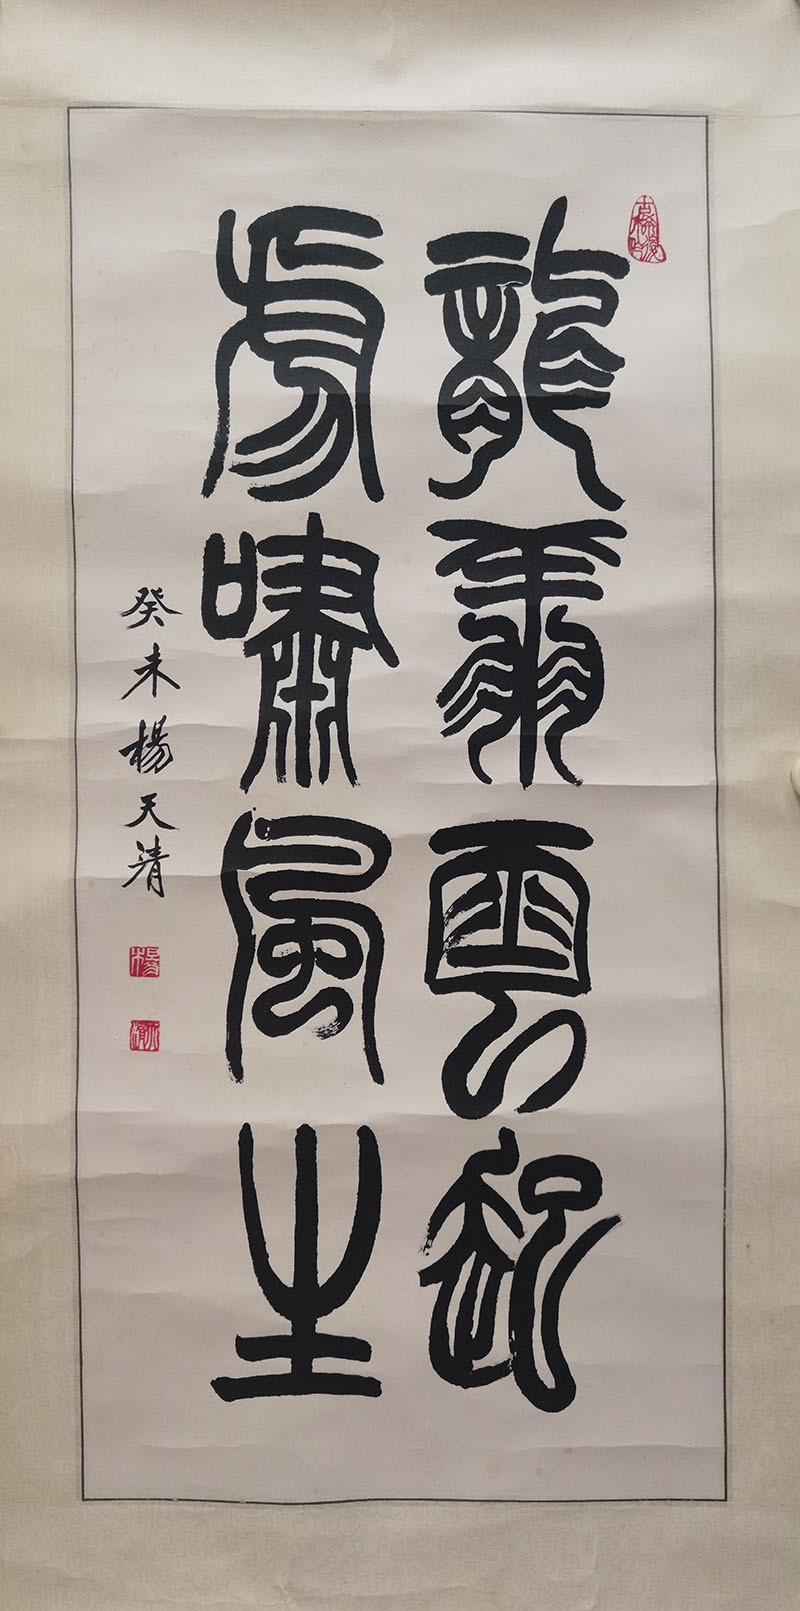 龍雲起
虎嘯風生
癸未楊天清
楊
天清